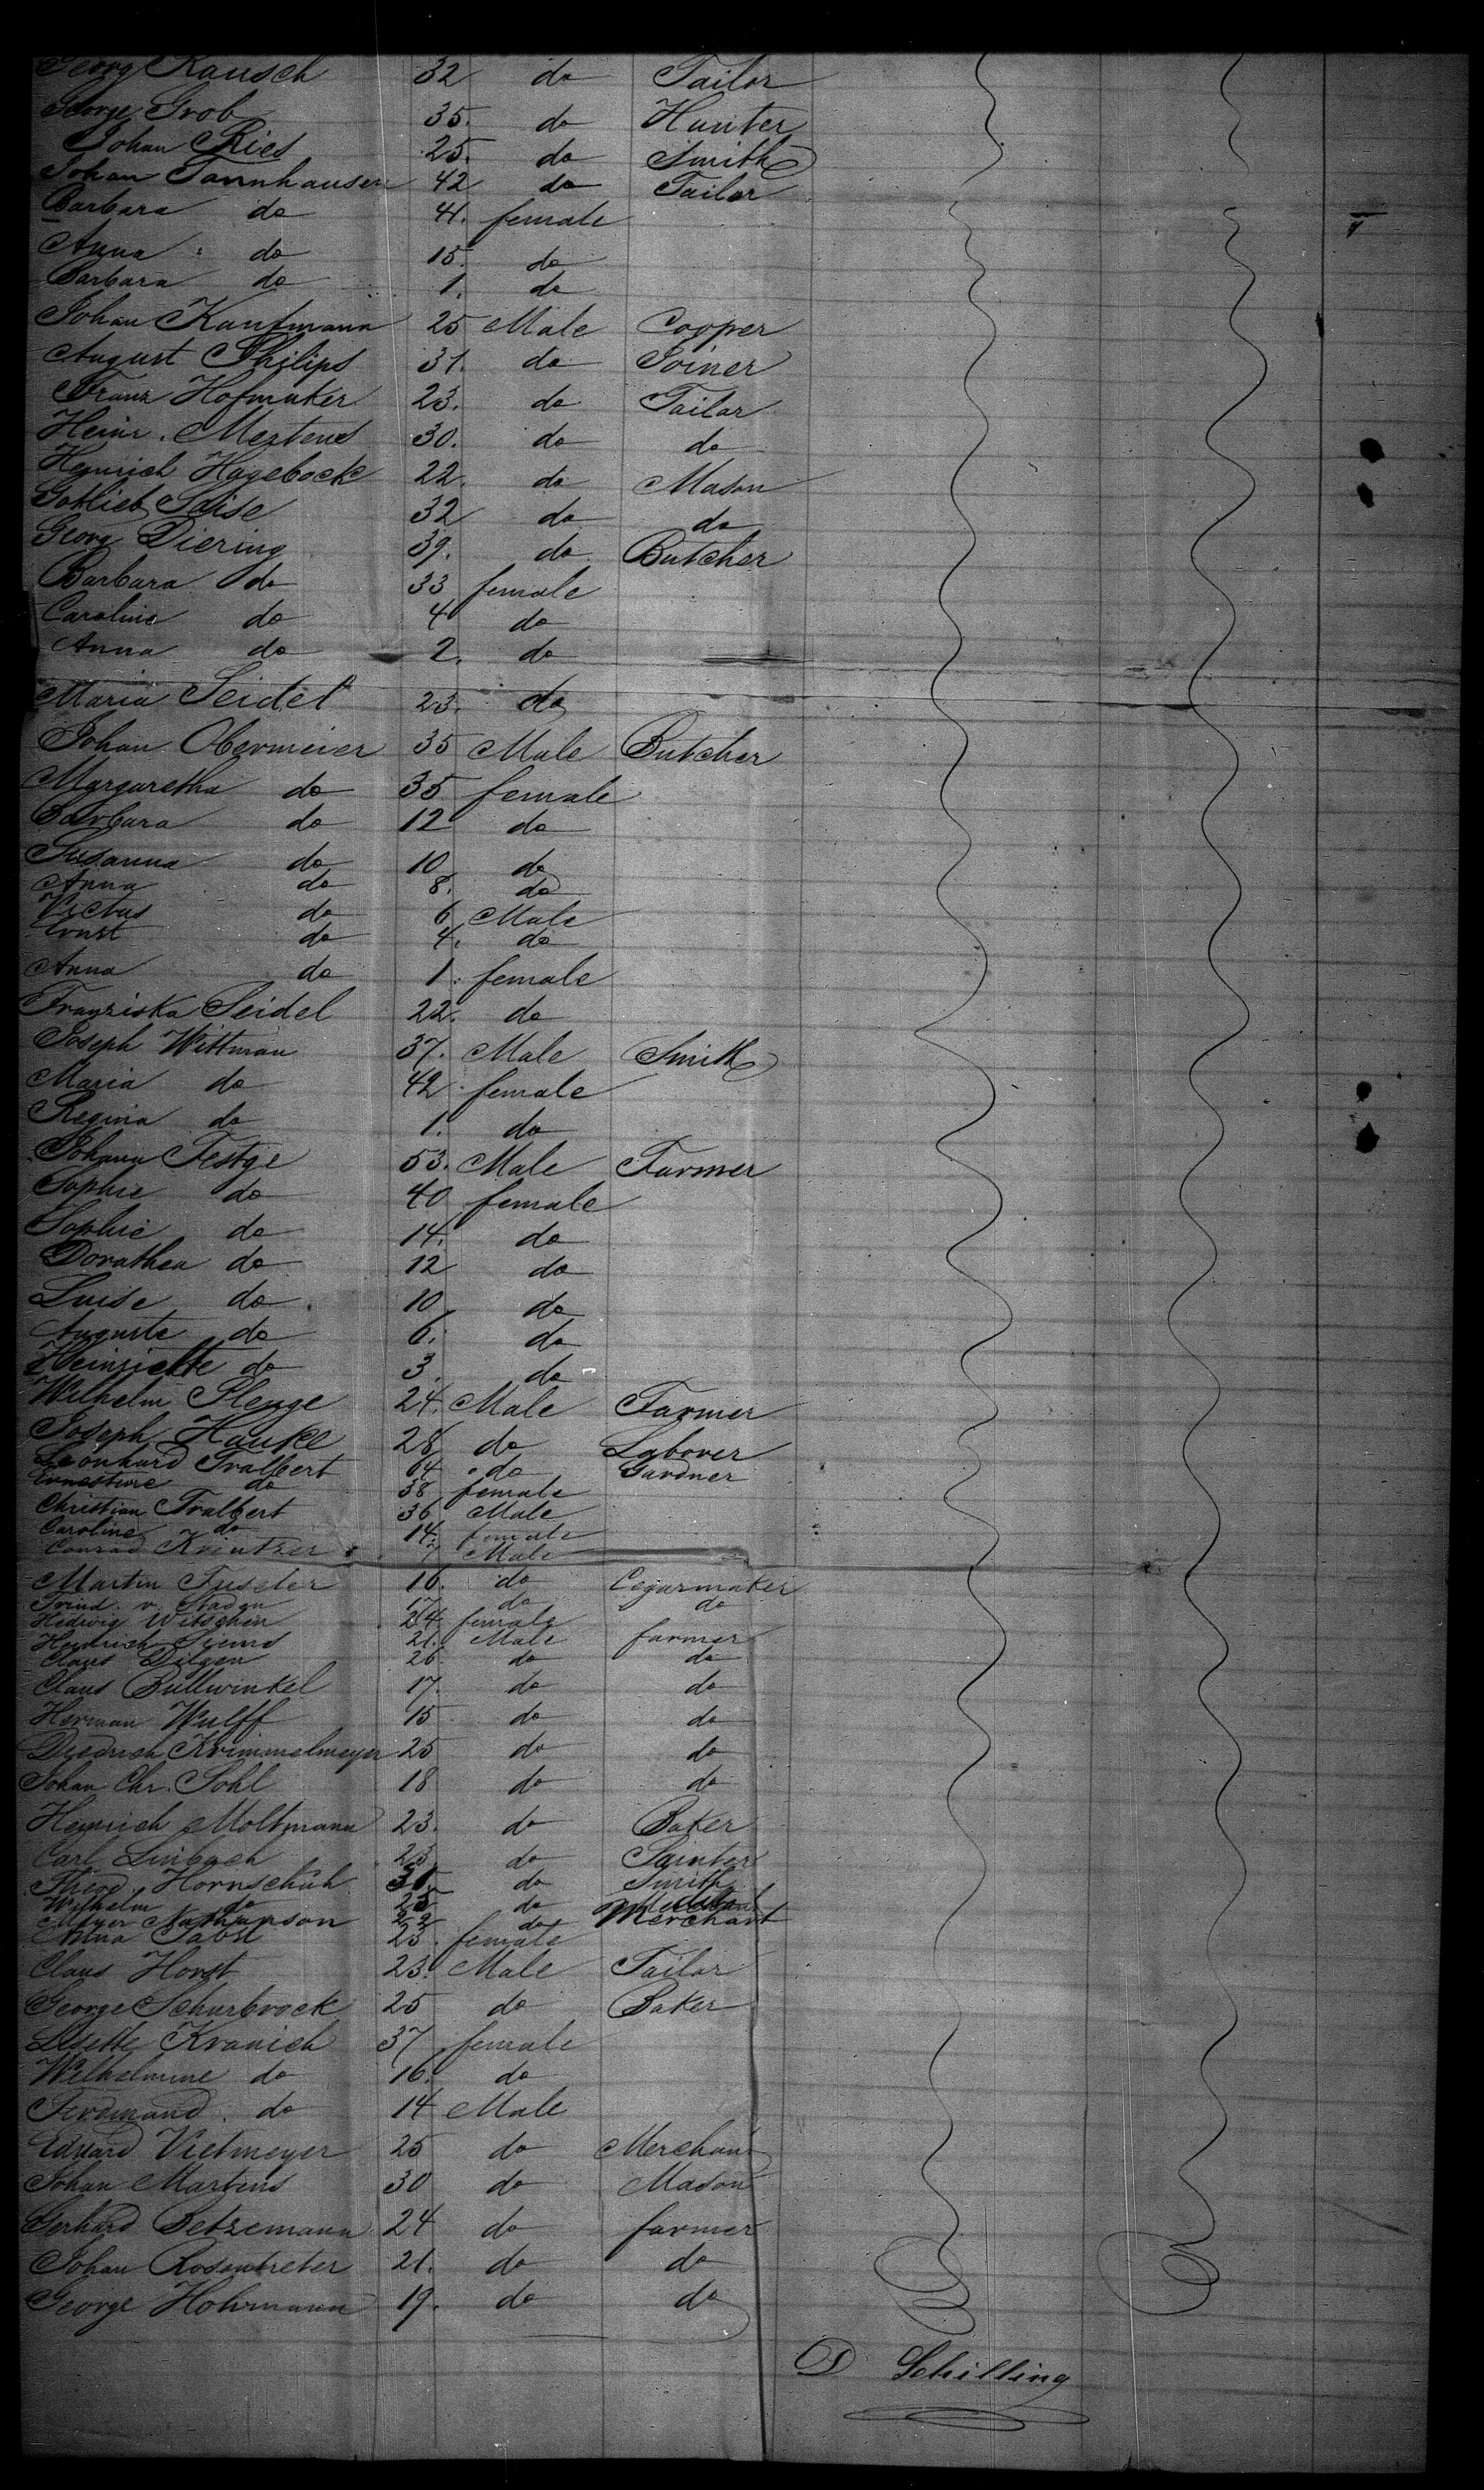 Georg Rausch 32 do Tailor
George Grob 35. do Hunter
Johan Ries 25. do Smith
Johan Tannhausen 42 do Tailor
Barbara do 41. female
Anna do 15. do
Barbara do 1. do
Johan Kaufmann 25 Male Cooper
August Philips 31. do Joiner
Franz Hofmaker 23. do Tailor
Heinr. Mertens 30. do do
Heinrich Hagebock 22. do Mason
Gottlieb 32 do do
Georg Diering 39. do Butcher
Barbara do 33 female
Caroline do 4 do
Anna do 2. do
Maria Seidel 23. do
Johan Obermeier 35 Male Butcher
Margaretha do 35 female
Barbara do 12 do
Susanna do 10 do
Anna do 8. do
Victus do 6 Male
Ernst do 4. do
Anna do 1. female
Franziska Seidel 22. do
Joseph Wittman 37. Male Smith
Maria do 42 female
Regina do 1. do
Johann Festge 53. Male Farmer
Sophie do 40 female
Sophie do 14. do
Dorathea do 12 do
Luise do 10 do
Auguste do 6. do
do 3. do
Wilhelm Plegge 24. Male Farmer
Joseph Hanke 28 do Laborer
Leonhard 64 do Gardner
Ernestine do 38 female
Christian Tralbert 36 Male
Caroline do 14. female
Conrad Krintzer 7 Male
Martin 16. do Cegarmaker
v. Staden 17 do do
Hedwig Witschen 24 female
Heinrich Siems 21. Male farmer
Claus Dilgen 26 do do
Claus Bullwinkel 17. do do
Herman Wulff 15 do do
Diedrich Krimmelmeyer 25 do do
Johan Chr. Sohl 18 do do
Heinrich Moltmann 23. do Baker
Carl Linbach 23 do Painter
Hornschuh 31. do Smith
Wilhelm do 25 do
Meyer Nathanson 22 do Merchant
Anna Pabst 23. female
Claus Horst 23. Male Tailor
George Schurbrock 25 do Baker
Lisette Kranich 37 female
Wilhelmine do 16. do
Ferdinand do 14 Male
Eduard Vietmeyer 25 do Merchant
Johan Martens 30 do Mason
Gerhard Betzemann 24 do farmer
Johan Rosentreter 21. do do
George Hohrmann 19. do do
D Schilling